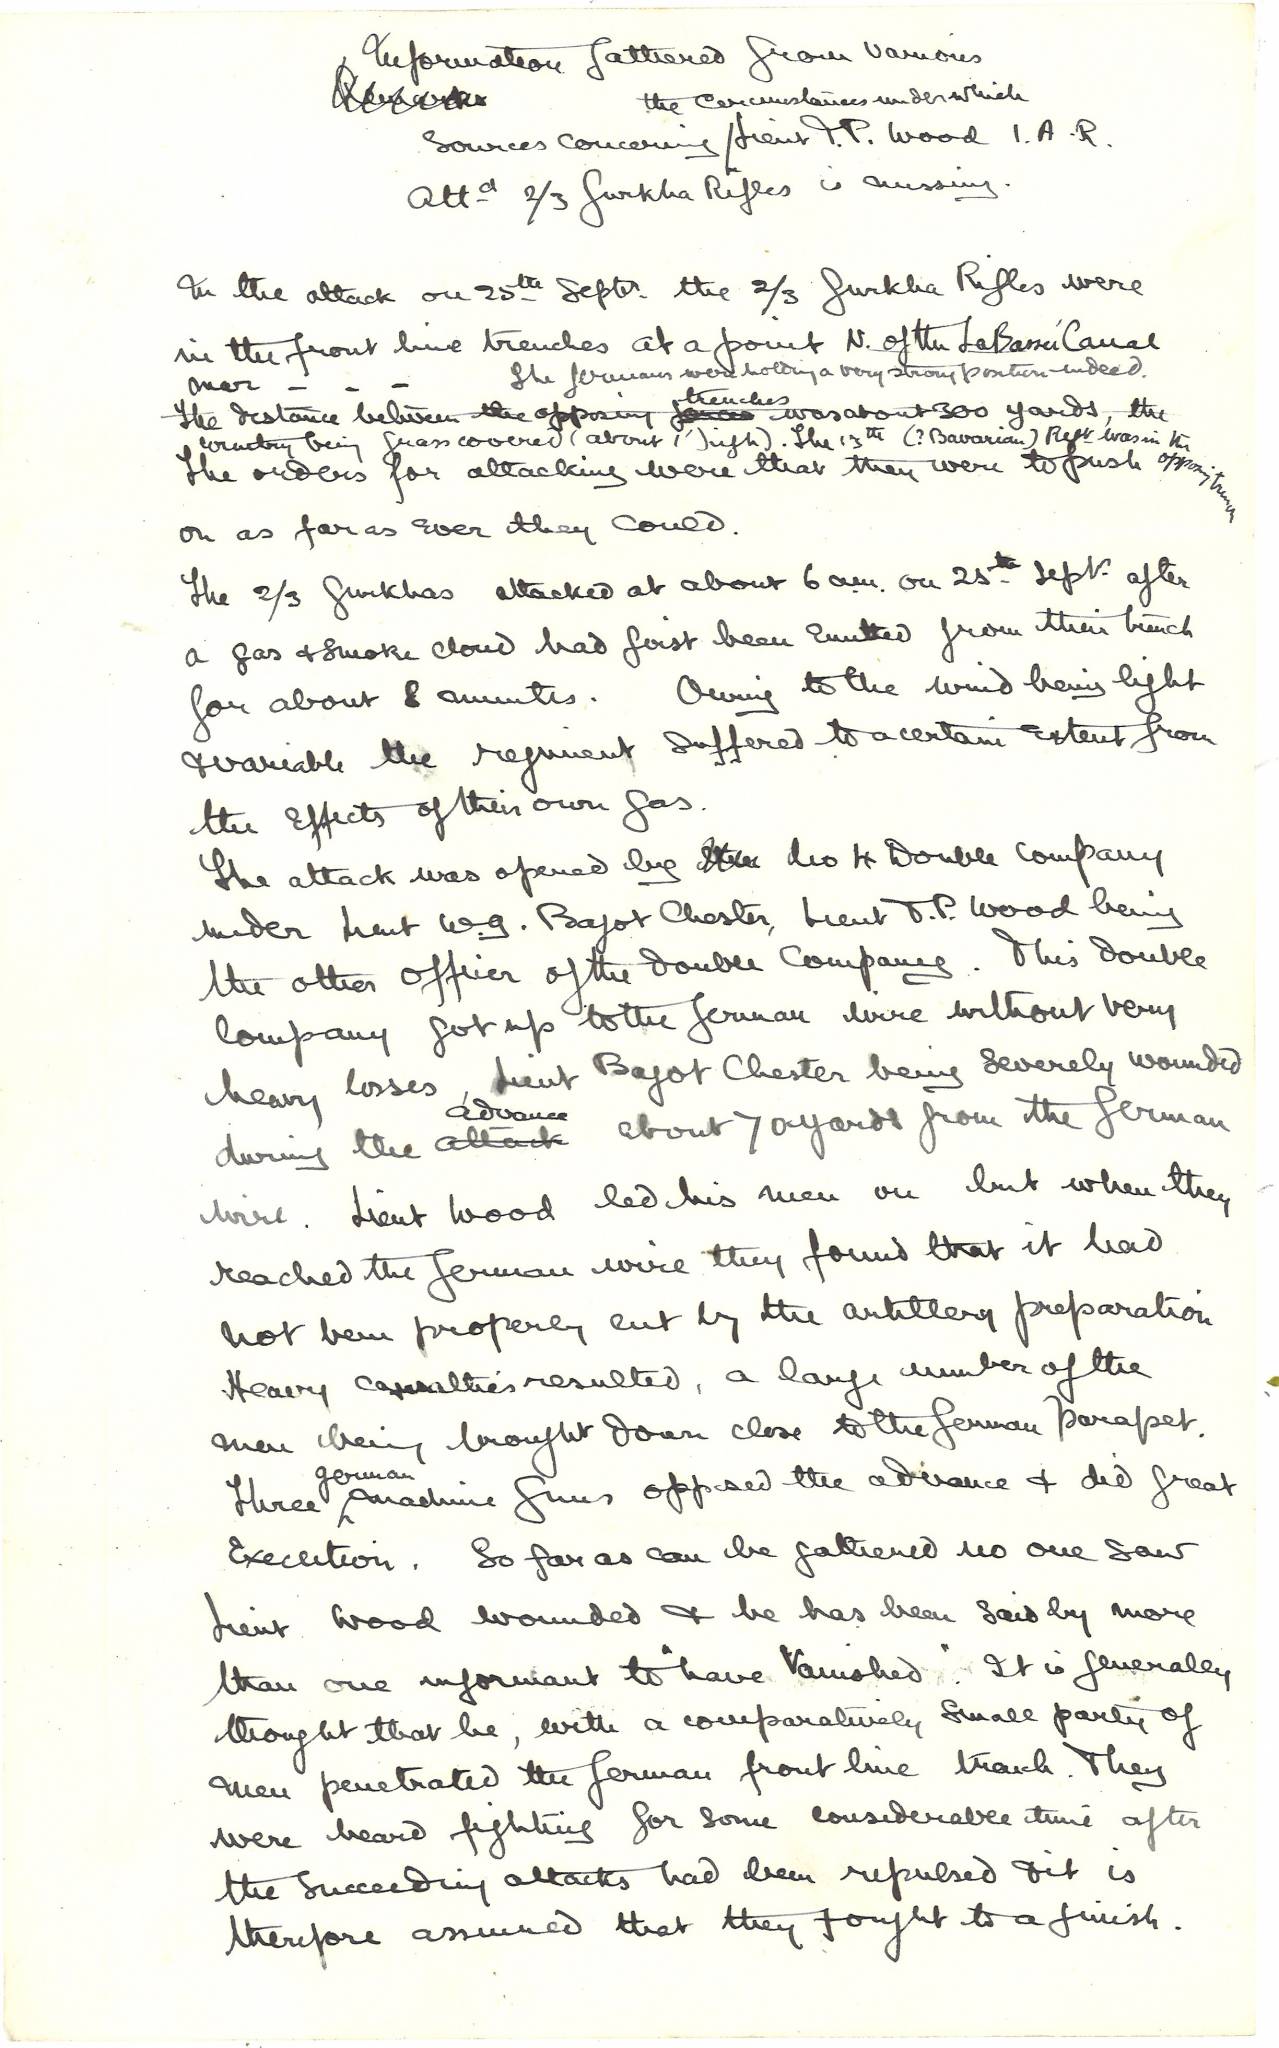 Information gathered from various
the circumstances under which
Sources concerning / Lieut T.P. Wood I.A.R.
Attd 2/3 Gurkha Rifles is missing.
In the attack on 25th Septr. the 2/3 Gurkha Rifles were
in the front line trenches at a point N. of the LaBassée Canal
near - - - The Germans were holding a very strong position indeed.
trenches
The distance between the opposing was about 300 yards, the
country being grass covered (about 1' high). The 13th (? Bavarian) Regt was in the
opposing trench
The orders for attacking were that they were to push
on as far as ever they could.
The 2/3 Gurkhas attacked at about 6 a.m. on 25th Sept. after
a gas & smoke cloud had first been emitted from their trench
for about 8 minutes. Owing to the wind being light
& variable the regiment suffered to a certain extent from
the effects of their own gas.
The attack was opened by No 4 Double Company
under Lieut W.G. Bagot Chester, Lieut T.P. Wood being
the other officer of the Double Company. This double
Company got up to the German wire without very
heavy losses, Lieut Bagot Chester being severely wounded
advance
during the attack about 70 yards from the German
wire. Lieut Wood led his men on but when they
reached the German wire they found that it had
not been properly cut by the artillery preparation
Heavy casualties resulted, a large number of the
men being brought down close to the German parapet.
german
Three machine guns opposed the advance & did great
execution. So far as can be gathered no one saw
Lieut Wood wounded & he has been said by more
than one informant to "have vanished". It is generally
thought that he, with a comparatively small party of
men penetrated the German front line trench. They
were heard fighting for some considerable time after
the succeeding attacks had been repulsed & it is
therefore assumed that they fought to a finish.